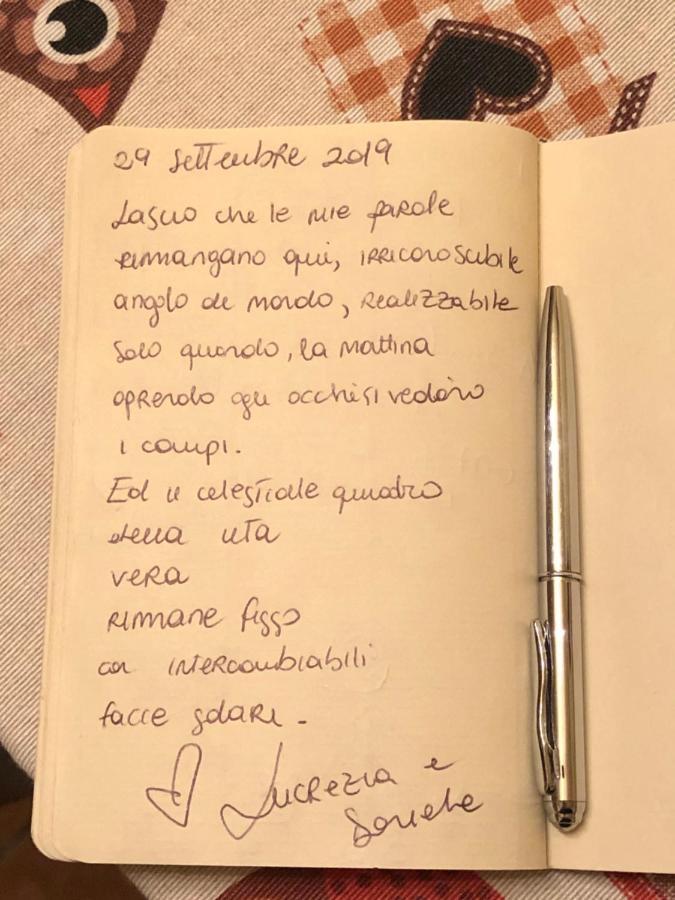 29 settembre 2019
Lascio che le mie parole
rimangano qui, irriconoscibile
angolo di mondo, realizzabile
solo quando, la mattina
aprendo gli occhi si vedono
i campi.
Ed il celestiale quadro
della vita
vera
rimane fisso
con intercambiabili
facce solari.
Lucrezia e
Daniele